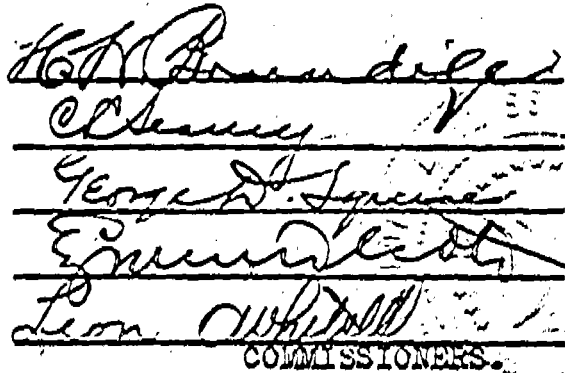 H W Brundige
C. Seavey
George D. Squires
Leon Whitsell
COMMISSIONERS.